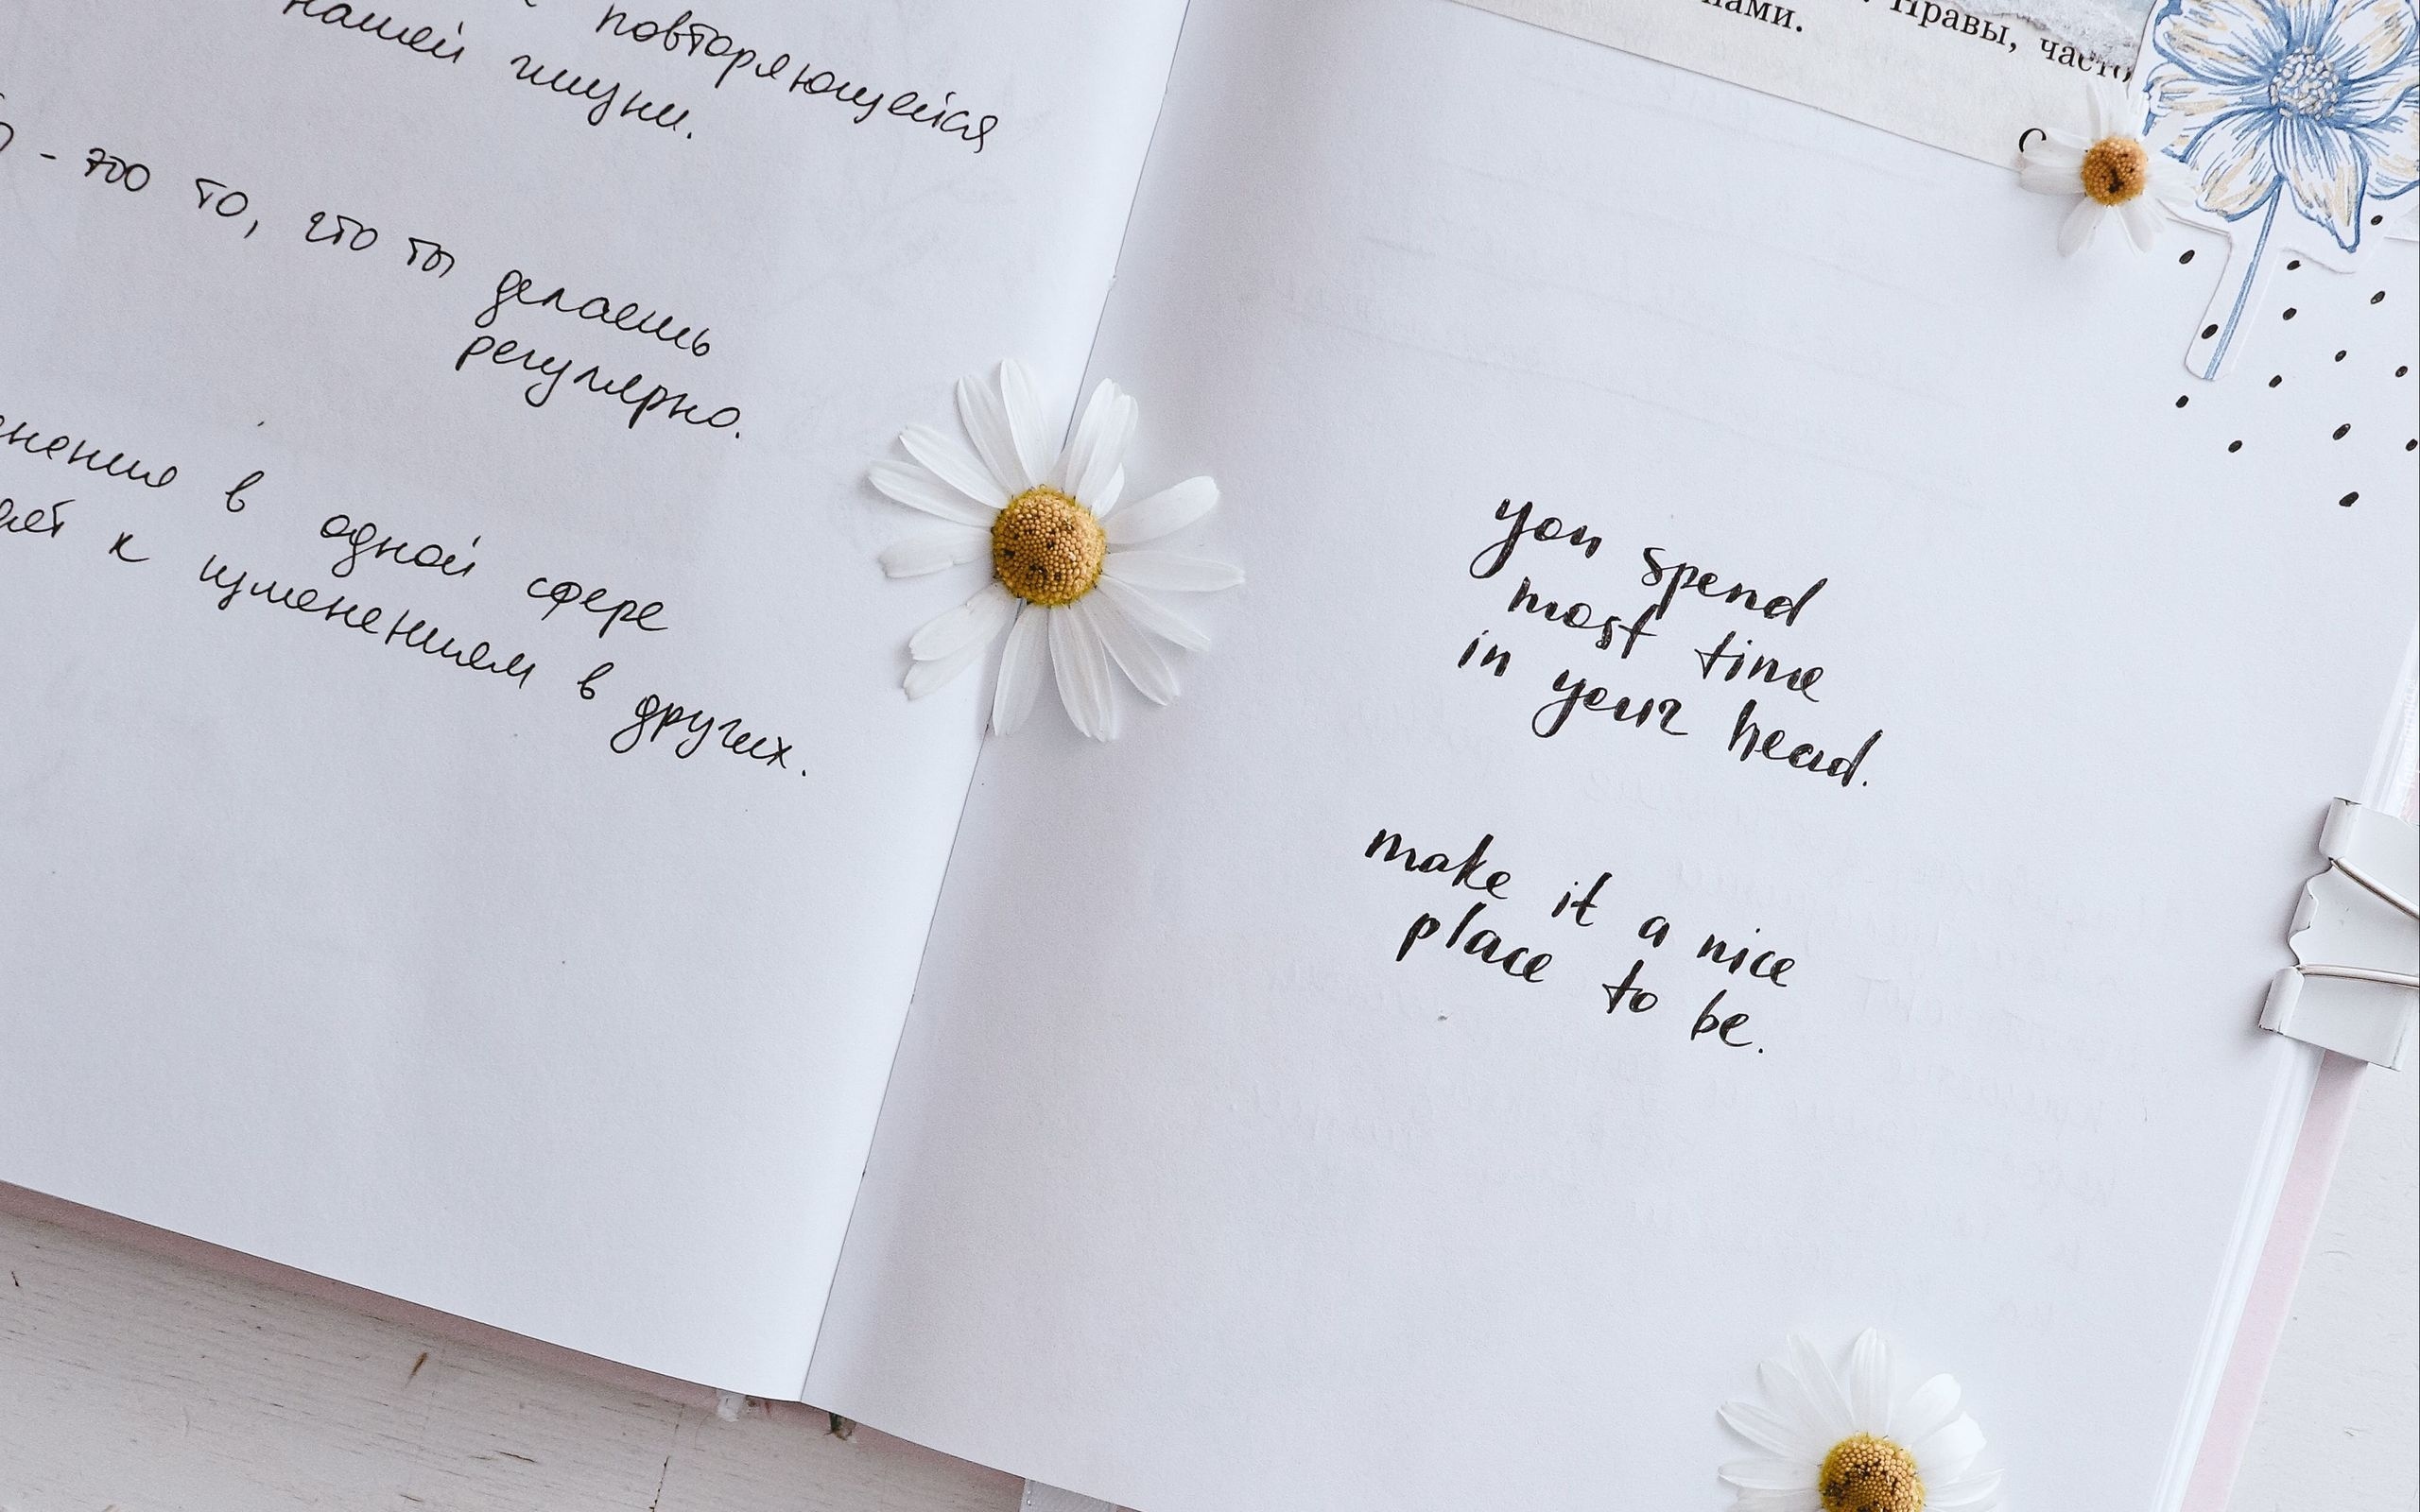 повторяющейся
нашей жизни.
- это то, что ты делаешь
регулярно.
в одной сфере
к изменениям в других.
нами.
Нравы, часто
С
you spend
most time
in your head.
make it a nice
place to be.